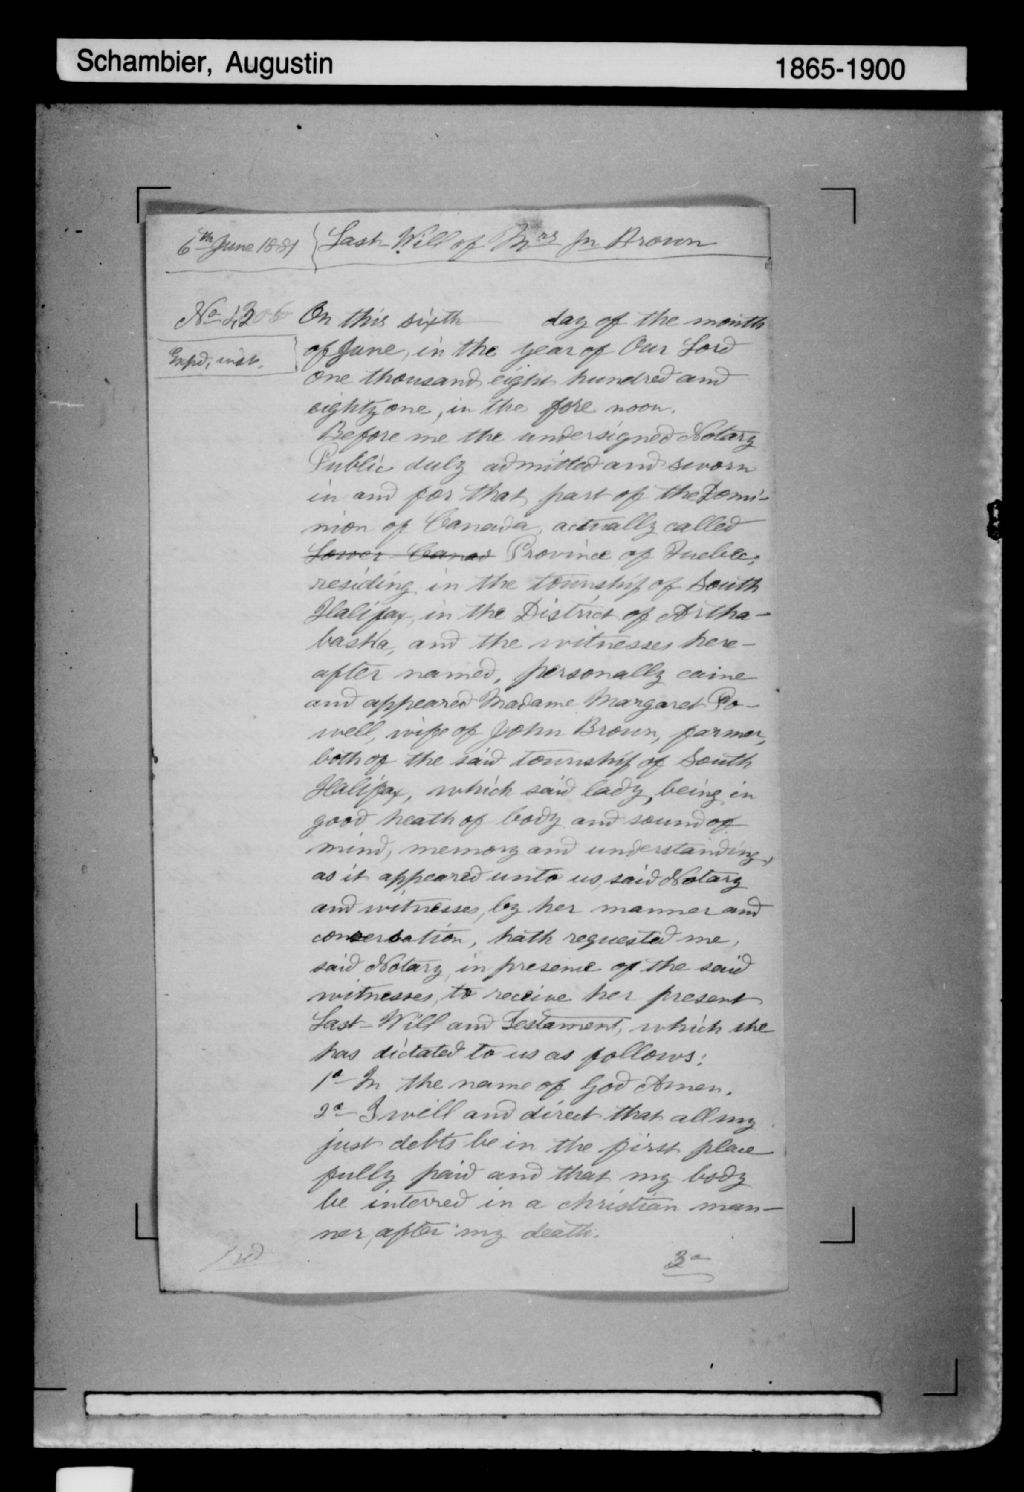 Schambier, Augustin
1865-1900
6th June 1881
Last Will of Mrs Jn Brown
No
On this sixth day of the month
Expd, inst.
of June, in the year of Our Lord
One thousand eight hundred and
eighty one, in the fore noon.
Before me the undersigned Notary
Public duly admitted and sworn
in and for that part of the Domi-
nion of Canada, actually called
Lower Canad Province of Quebec,
residing in the township of South
Halifax, in the District of Artha-
baska, and the witnesses here-
after named, personally came
and appeared Madame Margaret Po-
well, wife of John Brown, farmer,
both of the said township of South
Halifax, which said lady, being in
good heath of body and sound of
mind, memory and understanding,
as it appeared unto us, said Notary
and witnesses, by her manner and
conversation, hath requested me,
said Notary, in presence of the said
witnesses, to receive her present
Last Will and Testament, which she
has dictated to us as follows:
1o In the name of God Amen.
2o I will and direct that all my
just debts be in the first place
fully paid and that my body
be interred in a christian man-
ner, after my death.
3o